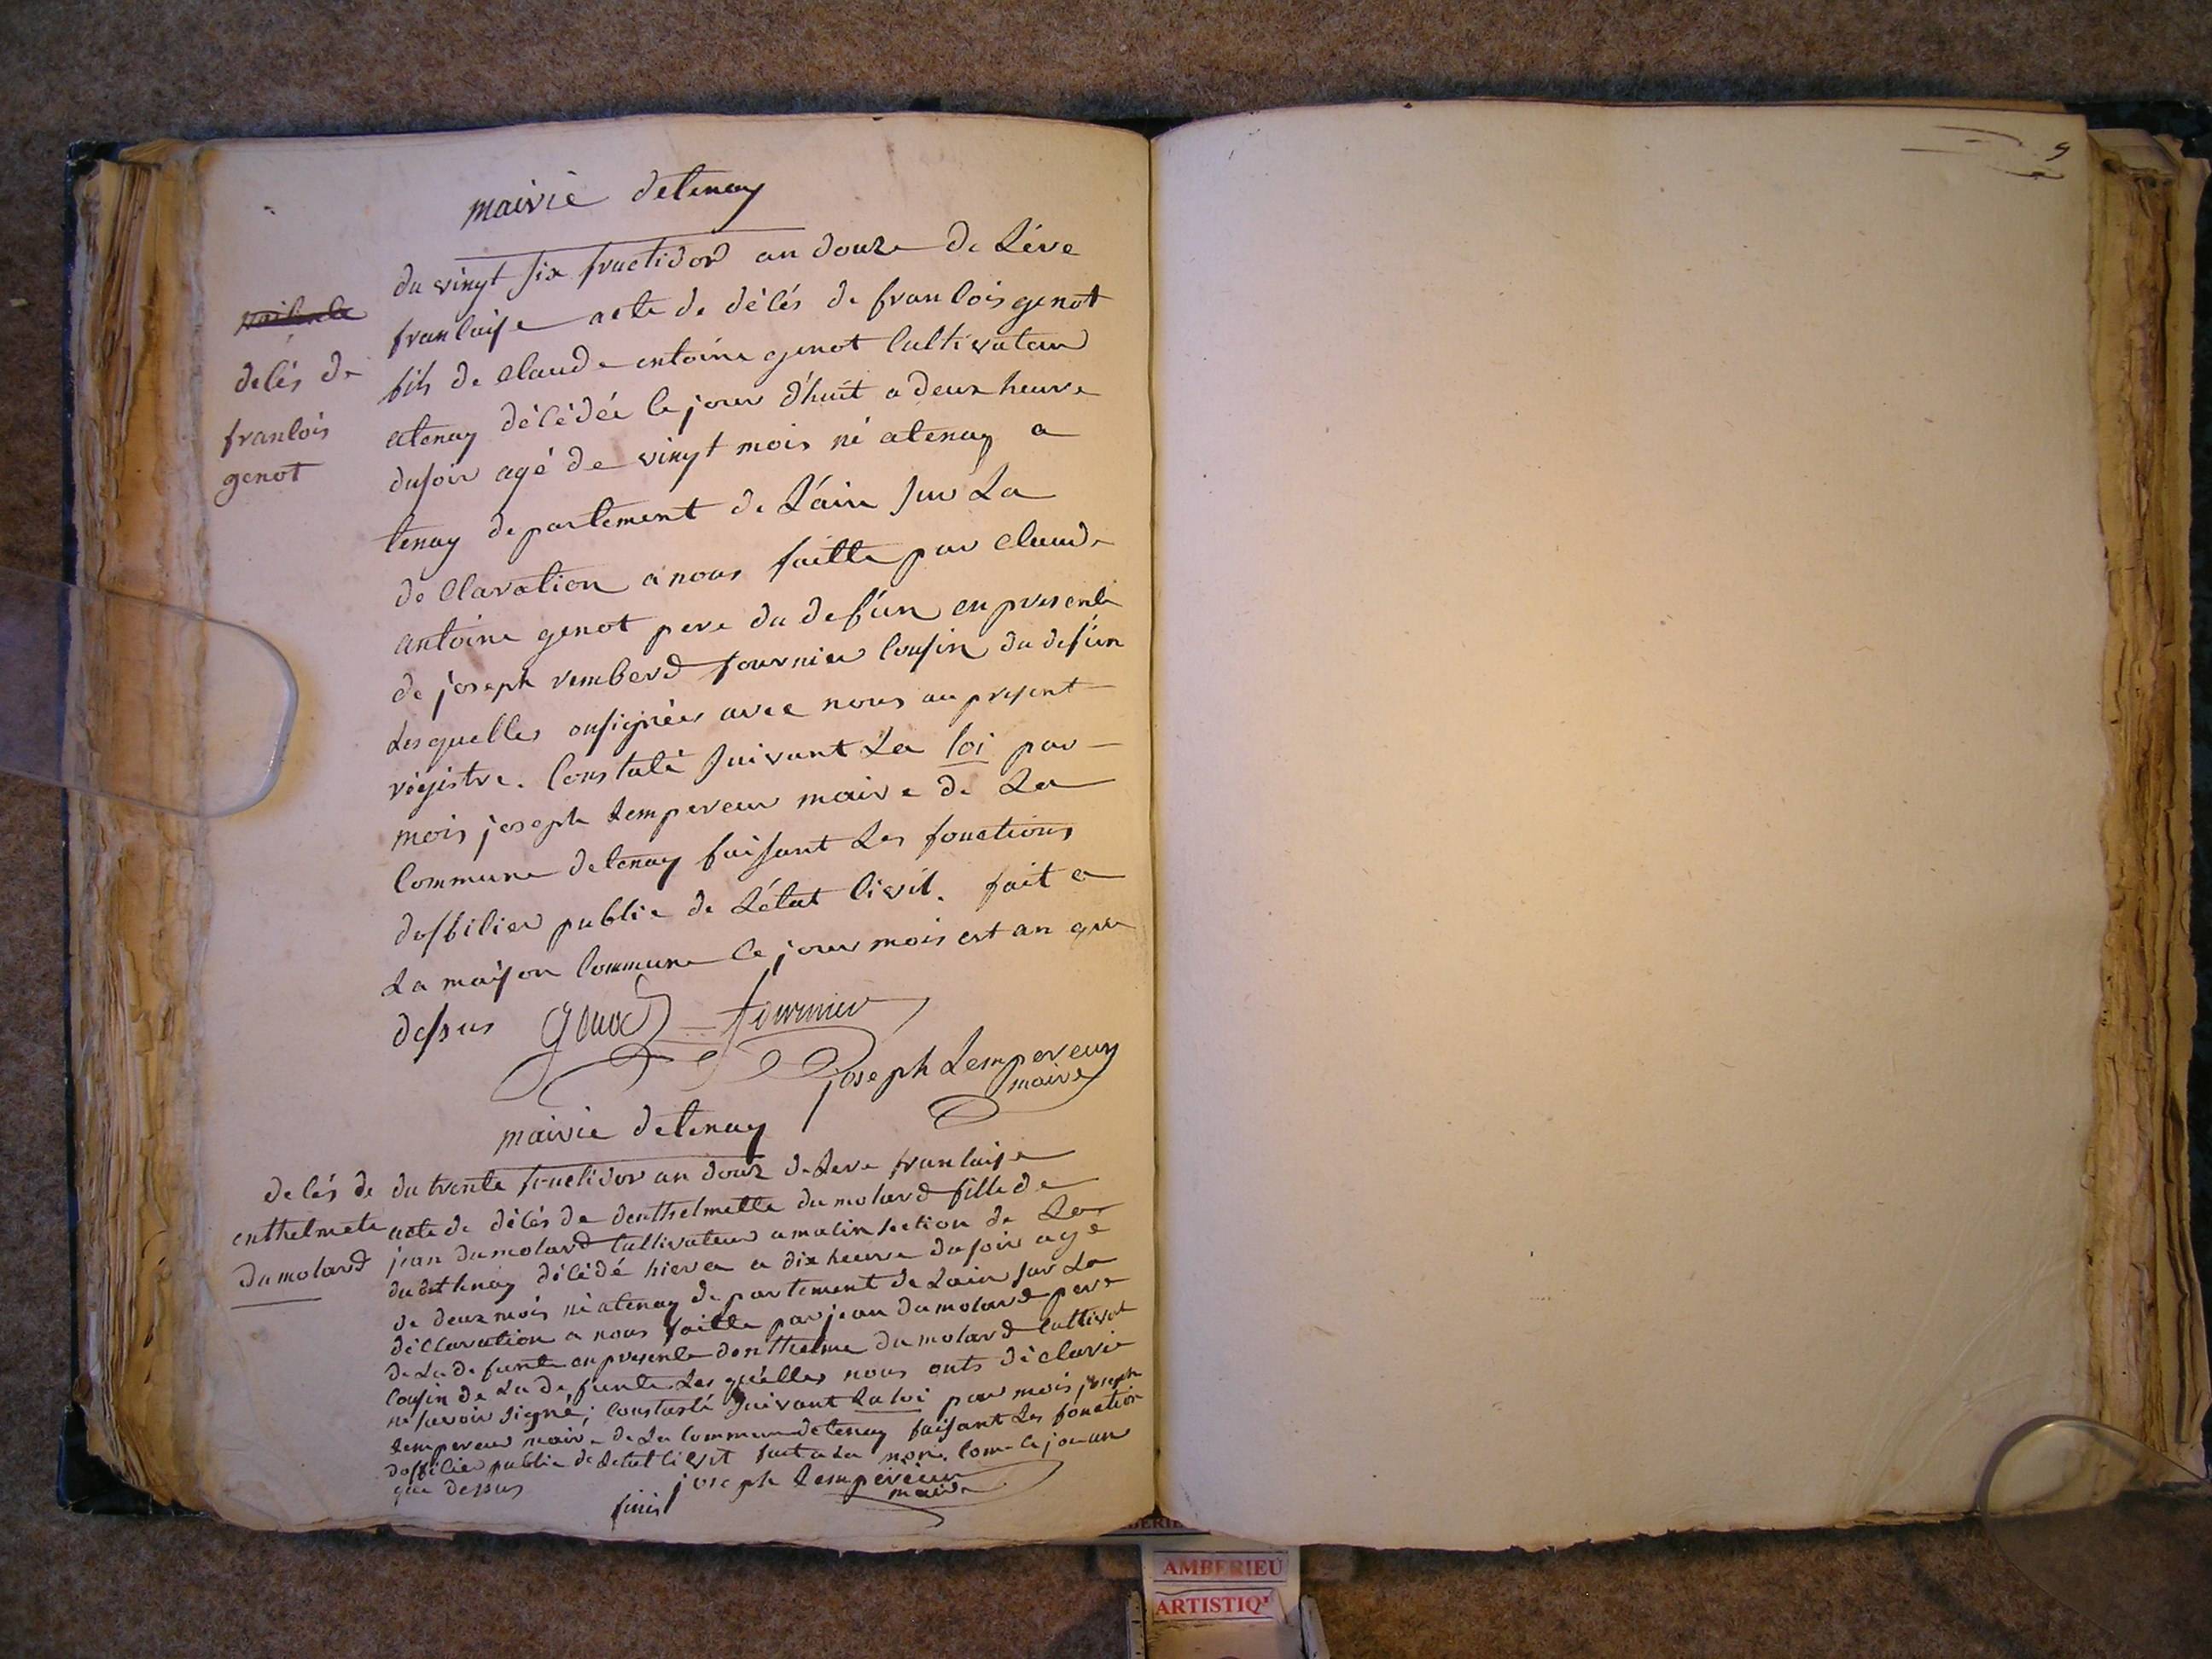 mairie detenay
du vingt six fructidor an douze de Lére
francaise acte de décés de francois genot
fils de claude antoine genot cultivateur
atenay décédée cejour d'huit a deux heure
dusoir agé de vingt mois né atenay a
tenay departement de L'ain sur La
declaration a nous faitte par claude
antoine genot pere du defun en presence
de joseph remberd fournier cousin du defun
Lesquelles onsignées avec nous au present
régistre. Constaté suivant La loi par
mois joseph Lempereur maire de La
Commune detenay faisant Les fonctions
dofficier public de L'état civil. fait a
La maison Commune ce jour mois et an que
dessus genot fournier
joseph Lempereur
maire
decés de
francois
genot
mairie detenay
du trente fructidor an douz deLere francaise
acte de décés de denthelmette dumolard fille de
jean dumolard cultivateur a malin section de La
dudit tenay décédé hiere a dix heure dusoir agé
de deux mois né atenay departement de Lain sur La
déclaration a nous faitte par jean dumolard pere
de La defunte en presence denthelme dumolard cultivat
cousin de La defunte Lesquélles nous onts déclarée
ne savoir signé; constasté suivant La loi par mois joseph
Lempereur maire de La commune detenay faisant Les fonction
dofficier public de Letat civil fait a La mon. com. ce jo an
que dessus joseph Lempereur
maire
finis
decés de
enthelmete
dumolard
9
AMBERIEU
ARTISTIQ'